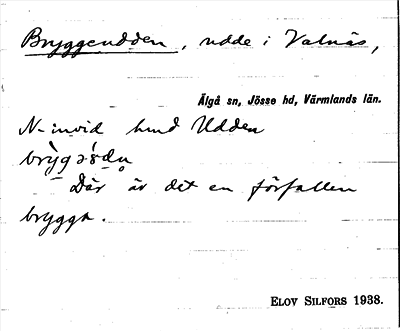 Bryggeudden, udde i Valnäs,
Älgå sn, Jösse hd, Värmlands län.
N-invid hmd Udden
Där är det en förfallen
brygga.
ELOV SILFORS 1938.